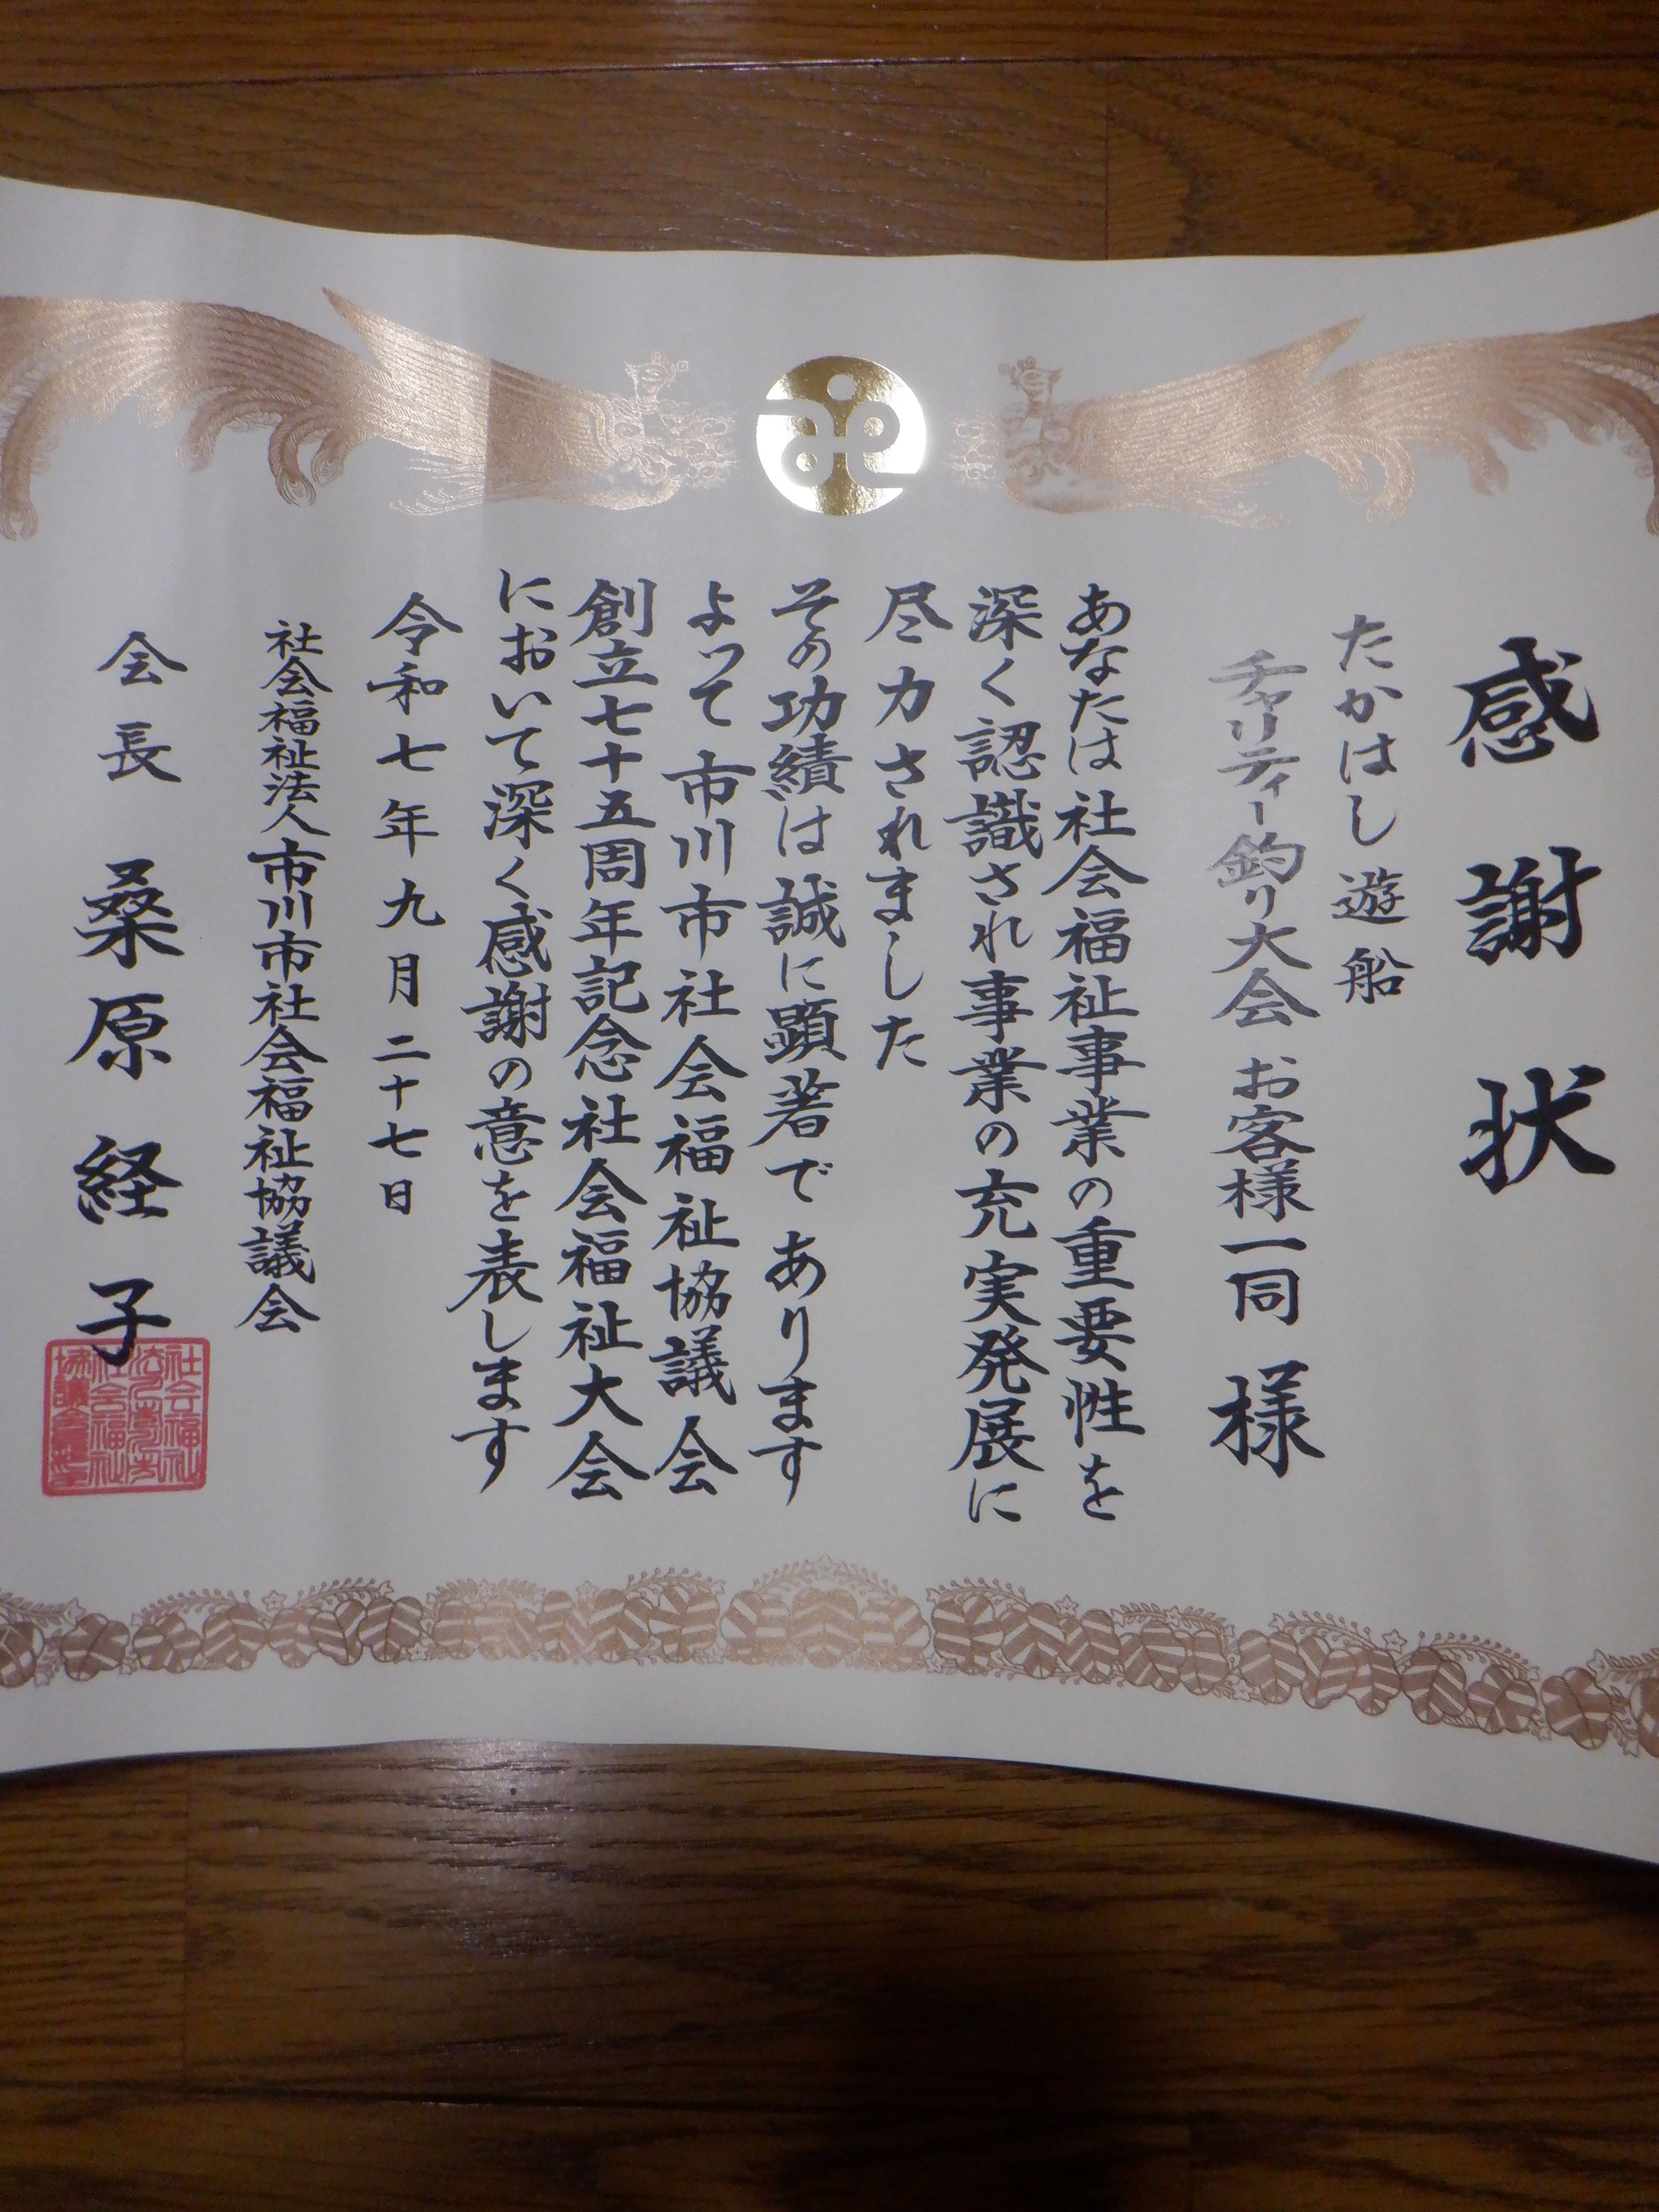 感謝状
たかはし遊船
チャリティー釣り大会お客様一同 様
あなたは社会福祉事業の重要性を
深く認識され事業の充実発展に
尽力されました
その功績は誠に顕著であります
よって市川市社会福祉協議会
創立七十五周年記念社会福祉大会
において深く感謝の意を表します
令和七年九月二十七日
社会福祉法人市川市社会福祉協議会
会長 桑原経子